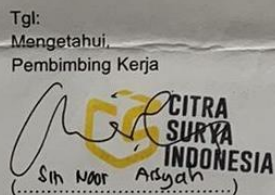 Tgl:
Mengetahui,
Pembimbing Kerja
CITRA
SURYA
INDONESIA
Siti Noor Aisyah
(........................)